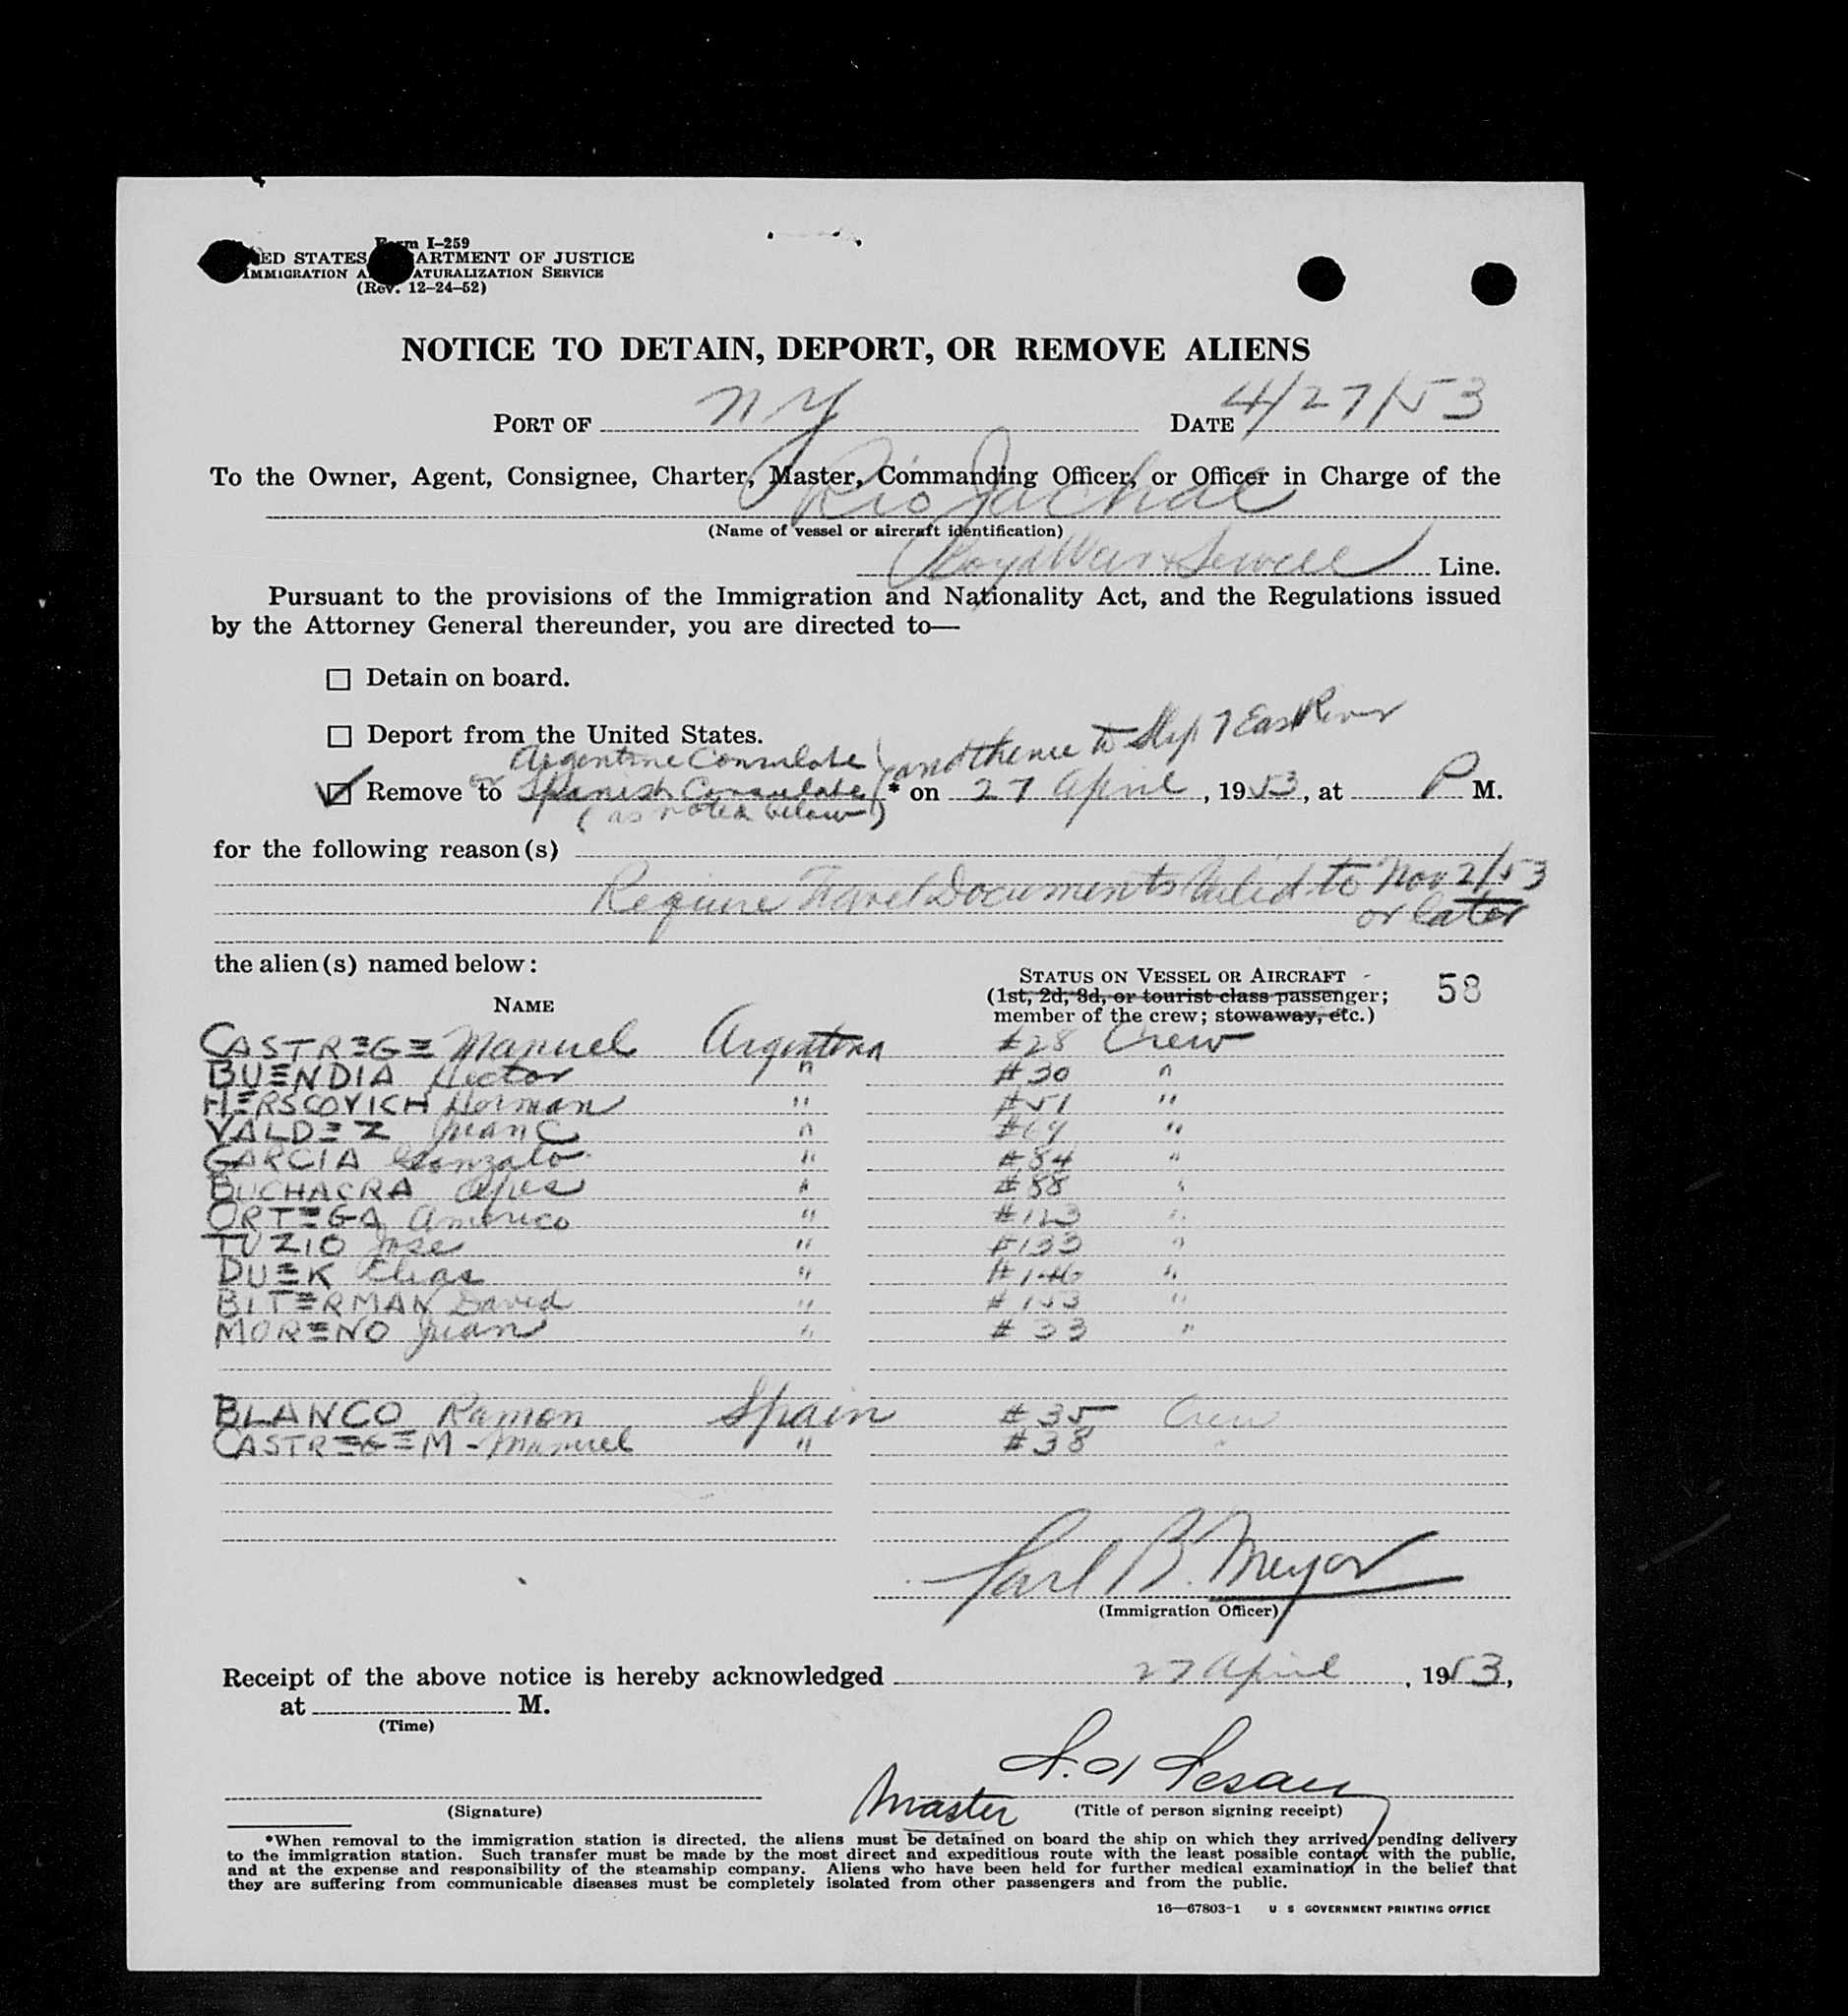 Form I-259
ED STATES ARTMENT OF JUSTICE
IMMIGRATION A ATURALIZATION SERVICE
(Rev. 12-24-52)
NOTICE TO DETAIN, DEPORT, OR REMOVE ALIENS
PORT OF NY DATE 4/27/53
To the Owner, Agent, Consignee, Charter, Master, Commanding Officer, or Officer in Charge of the
Rio Jachal
(Name of vessel or aircraft identification)
Boyd Weir & Sewell Line.
Pursuant to the provisions of the Immigration and Nationality Act, and the Regulations issued
by the Attorney General thereunder, you are directed to—
Detain on board.
Deport from the United States.
Argentine Consulate and thence to Slip 7 East River
Remove to or Spanish Consulate * on 27 April, 1953, at P M.
(as noted below)
for the following reason(s)
Require Travel Documents Valid to Nov 2/53
or later
the alien(s) named below:
STATUS ON VESSEL OR AIRCRAFT
(1st, 2d, 3d, or tourist class passenger; 58
NAME member of the crew; stowaway, etc.)
CASTREGE Manuel Argentina #28 Crew
BUENDIA Hector " #30 "
HERSCOVICH Herman " #51 "
VALDEZ Juan C " #64 "
GARCIA Gonzalo " #84 "
BUCHACRA " #88 "
ORTEGA Americo " #123 "
TUZIO Jose " #133 "
DUEK Elias " #146 "
BITERMAN David " #153 "
MORENO Juan " #33 "
BLANCO Ramon Spain #35 Crew
CASTREGEM - Manuel " #38 "
Carl B. Meyer
(Immigration Officer)
Receipt of the above notice is hereby acknowledged 27 April, 1953,
at M.
(Time)
Master
(Signature) (Title of person signing receipt)
*When removal to the immigration station is directed, the aliens must be detained on board the ship on which they arrived pending delivery
to the immigration station. Such transfer must be made by the most direct and expeditious route with the least possible contact with the public,
and at the expense and responsibility of the steamship company. Aliens who have been held for further medical examination in the belief that
they are suffering from communicable diseases must be completely isolated from other passengers and from the public.
16—67803-1 U S GOVERNMENT PRINTING OFFICE